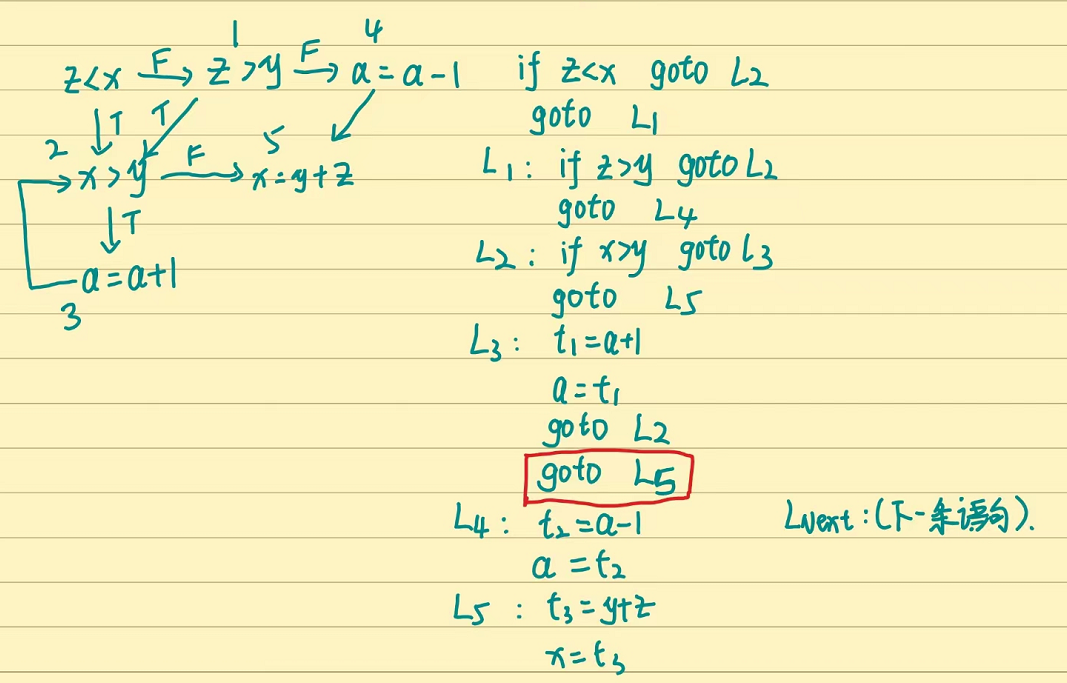 1 4
z<x F z>y F a=a-1
T T
2 5
x>y F x=y+z
T
a=a+1
3
if z<x goto L2
goto L1
L1: if z>y goto L2
goto L4
L2: if x>y goto L3
goto L5
L3: t1=a+1
a=t1
goto L2
goto L5
L4: t2=a-1
a=t2
L5: t3=y+z
x=t3
LNext:(下一条语句).